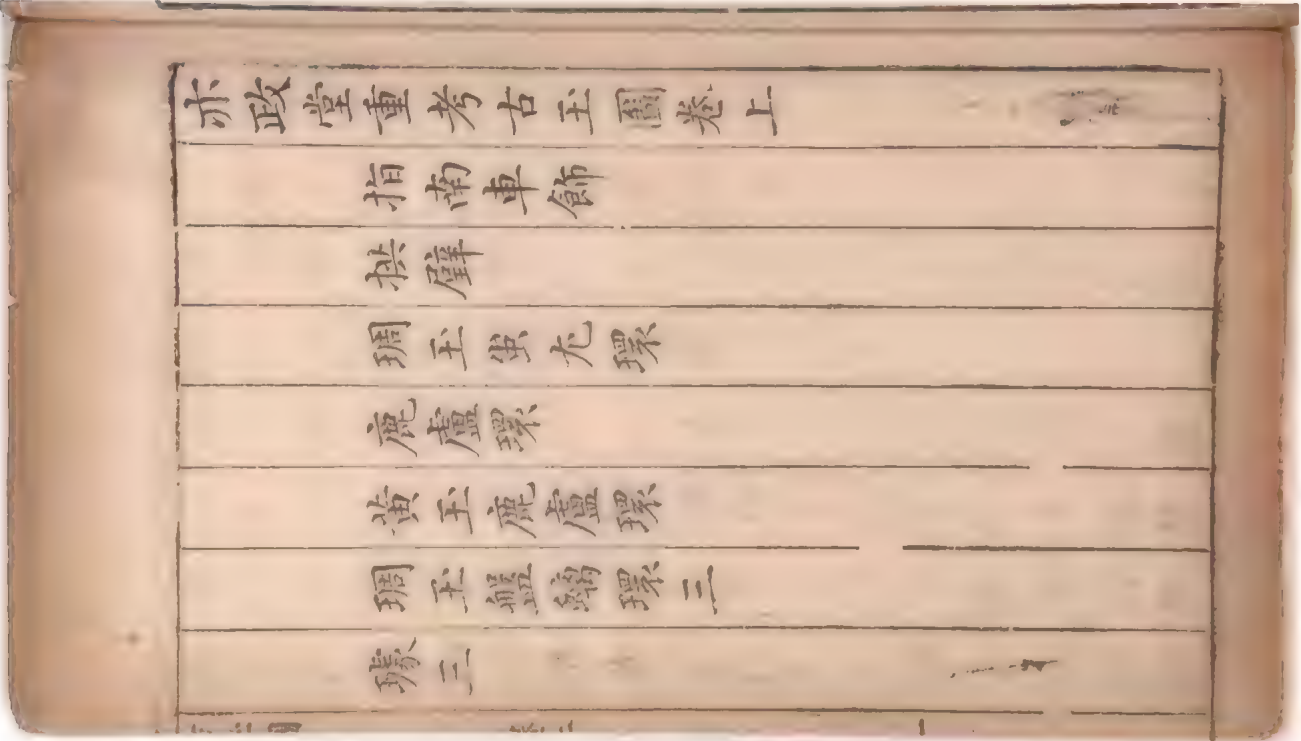 亦政堂重考古玉圖卷上
指南車飾
拱璧
琱玉蚩尤環
鹿盧環
黄玉鹿盧環
琱玉盤螭環三
璩三